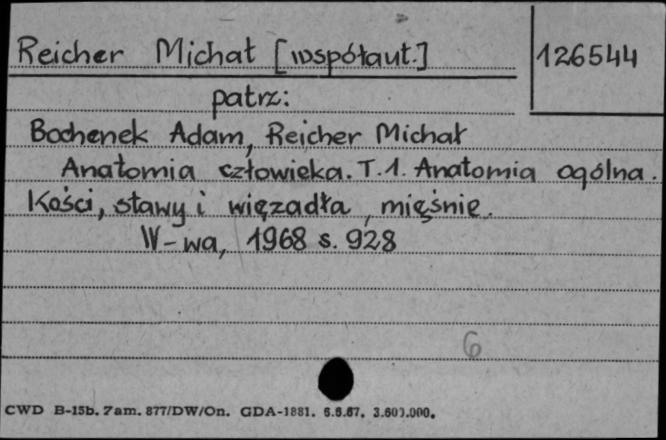 Reicher Michał [współaut.]
126544
patrz:
Bochenek Adam, Reicher Michał
Anatomia człowieka. T.1. Anatomia ogólna.
Kości, stawy i więzadła, mięśnie.
W-wa, 1968 s. 928
6
CWD B-15b. Zam. 877/DW/On. GDA-1881. 6.6.67. 3.600.000.